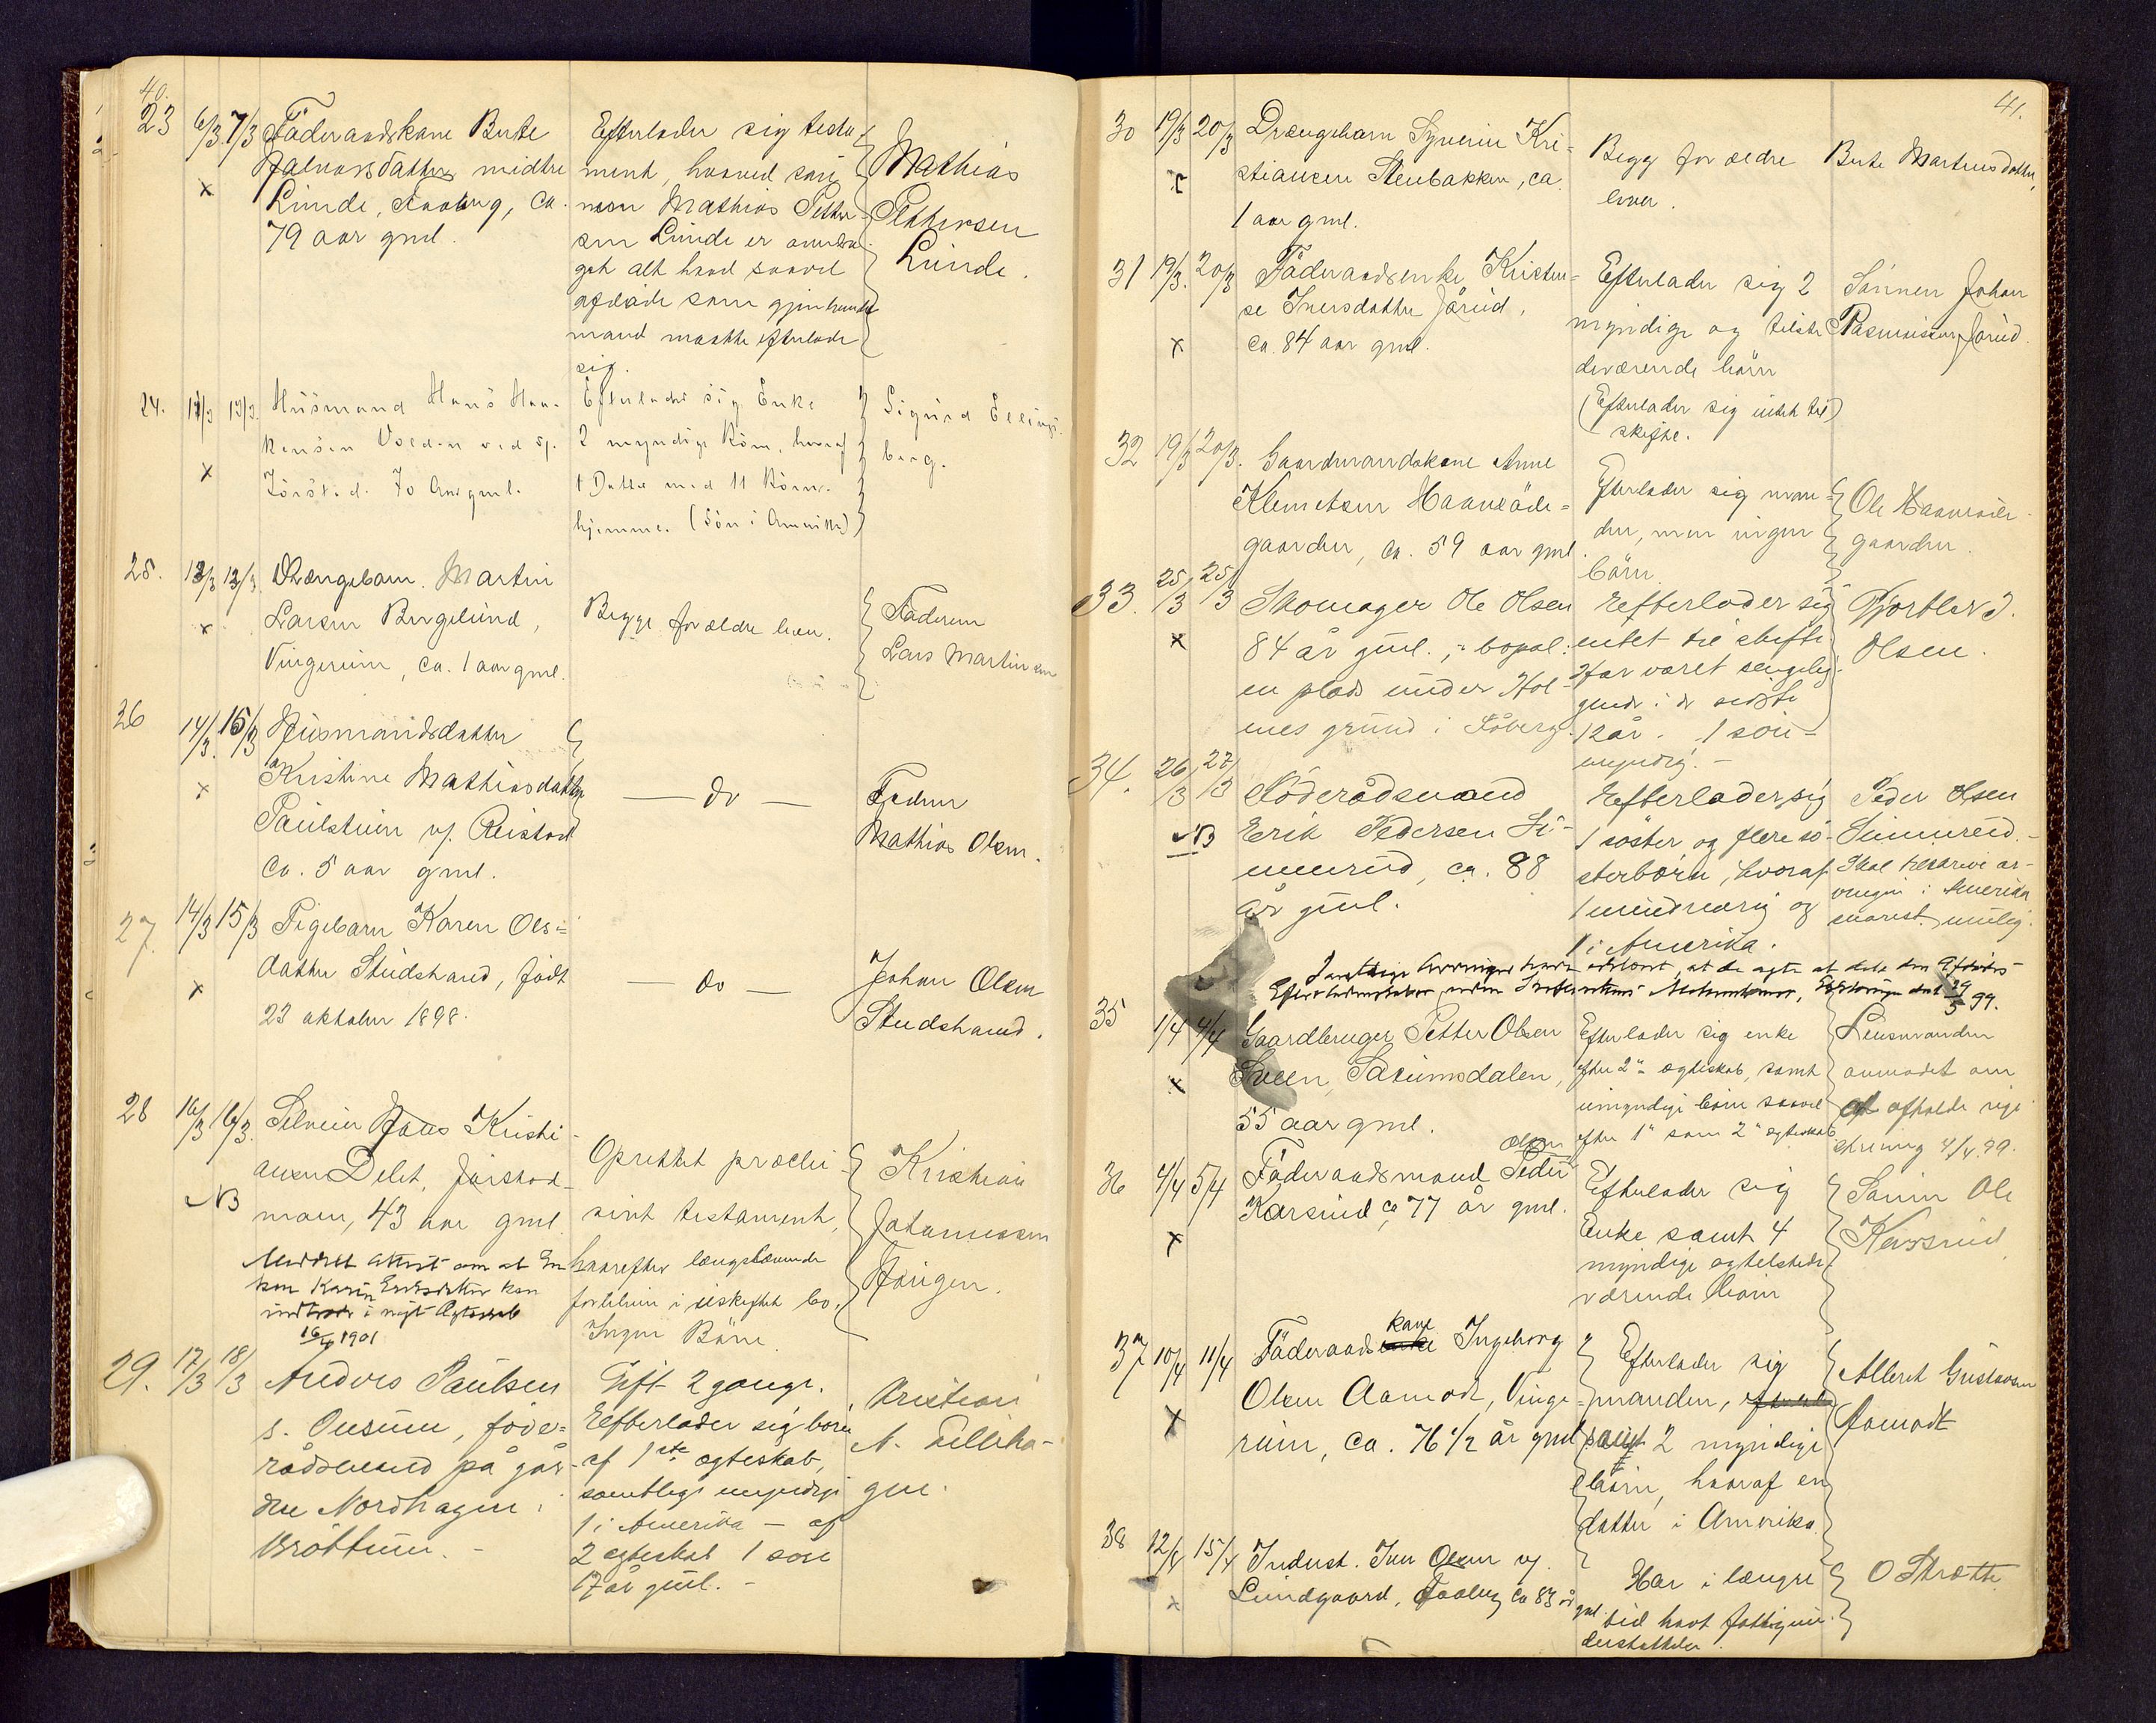 40.
23 6/3 7/3 Föderaadskone Berte
Halvorsdatter midtre
Linde, Faaberg, ca.
79 aar gml.
x
Efterlader sig testa-
ment, hvorved søn-
nen Mathias Petter-
sen Linde er
alt hvad saavel
afdøde som gjenlevende
mand maatte efterlade
sig.
Mathias
Pettersen
Linde.
24. 11/3 13/3 Husmand Hans Haa-
kensen Volden ved
70 Aar gml.
x
Efterlader sig Enke
2 myndige Börn, hvoraf
1 Datter med 11 Börn
hjemme. (Sön i Amerika)
Sigurd Ellings-
berg.
25. 12/3 13/3 Drængebarn Martin
Larsen Berglund,
Vingerum, ca. 1 aar gml.
x
Begge forældre lever.
Faderen
Lars Martinsen
26 14/3 15/3 Husmandsdatter
Kristine Mathiasdatter
Paulstuen v/ Reistad
ca. 5 aar gml.
x
— do —
Faderen
Mathias Olsen.
27. 14/3 15/3 Pigebarn Karen Ols-
datter Studsrud, født
23 oktober 1898.
x
— do —
Johan Olsen
Studsrud.
28 16/3 16/3 Selveier Hans Kristi-
ansen Delet, Jørstad-
moen, 43 aar gml.
NB
Meddelt Attest om at En-
ken Karin Eriksdatter kan
indtræde i nyt Ægteskab
16/4 1901
Oprettet
testament,
hvorefter længstlevende
forbliver i uskiftet bo.
Ingen Börn
Kristian
Johannessen
Haugen.
29. 17/3 18/3 Andres Paulsen
s. Onsum, føde-
rådsmand på går-
den Nordhagen i
Brøttum. -
Gift 2 gange.
Efterlader sig børn
af 1ste ægteskab,
samtlige myndige
1 i Amerika — af
2 egteskab 1 søn
17 år gml. -
Kristian
A. Lilleha-
gen.
41.
30 19/3 20/3 Drængebarn Syverin Kri-
stiansen Stenbakken, ca.
1 aar gml.
Begge forældre
lever.
Berte Martinusdatter,
31 19/3. 20/3 Föderaadsenke Kristen-
se Iversdatter Jörud,
ca. 84 aar gml.
x
Efterlader sig 2
myndige og tilste-
deværende börn
(Efterlader sig intet til)
skifte.
Sönnen Johan
Rasmussen Jörud.
32 19/3 20/3. Gaardmandskone Anne
Klemetsen Haaveöde-
gaarden, ca. 59 aar gml.
Efterlader sig man-
den, men ingen
börn.
Ole Haaveöde-
gaarden.
33. 25/3 25/3 Skomager Ole Olsen
84 år gml., bopæl:
en plads under Hol-
mes grund i Fåberg.
x
Efterlader sig
intet til skifte.
Har været sengelig-
gende i de sidste
12 år. 1 søn -
myndig. -
Olsen.
34. 26/3 27/3 Föderådsmand
Erik Pedersen Si-
merud, ca. 88
år gml.
NB
Efterlader sig
1 søster og flere sø-
sterbørn, hvoraf
1 mindreårig og
1 i Amerika.
Peder Olsen
Simerud. -
Skal tilskrive ar-
vingen i Amerika
snarest mulig.
Samtlige Arvinger have erklæret, at de agte at dele den Afdødes
Efterladenskaber uden Skifterettens Mellemkomst, Erklæringen dat 29/5 99.
35 1/4 4/4 Gaardbruger Petter Olsen
Sveen, Saxumsdalen,
55 aar gml.
x
Efterlader sig enke
efter 2" ægteskab, samt
umyndige börn saavel
efter 1" som 2" ægteskab
Lensmanden
anmodet om
at afholde regi-
strering 4/4. 99.
36 4/4 5/4 Föderaadsmand Peder Olsen
Karsrud ca 77 år gml.
x
Efterlader sig
Enke samt 4
myndige og tilstede-
værende börn
Sønnen Ole
Karsrud
37 10/4 11/4 Föderaadskone Ingeborg
Olsen Aamodt, Vinge-
rum, ca. 76 1/2 år gml
x
Efterlader sig
manden,
samt 2 myndige
börn, hvoraf en
datter i Amerika.
Albert Gustavsen
Aamodt
38 12/4 15/4 Inderst. Iver Olsen v/
Lundgaard, Faaberg ca 83 år
gml.
x
Har i længre
tid havt fattigun-
derstøttelse.
O Thrætte.